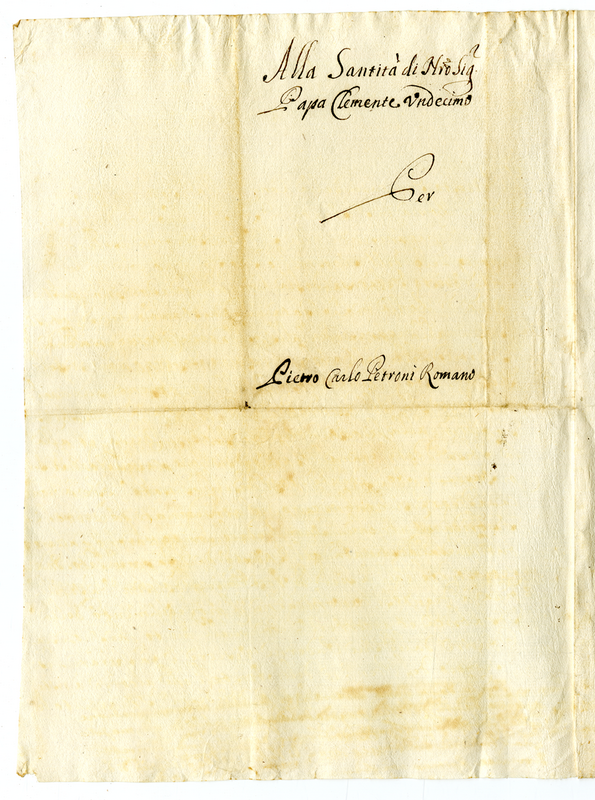 Alla Santità di Nro Sigr
Papa Clemente Undecimo
Per
Pietro Carlo Petroni Romano